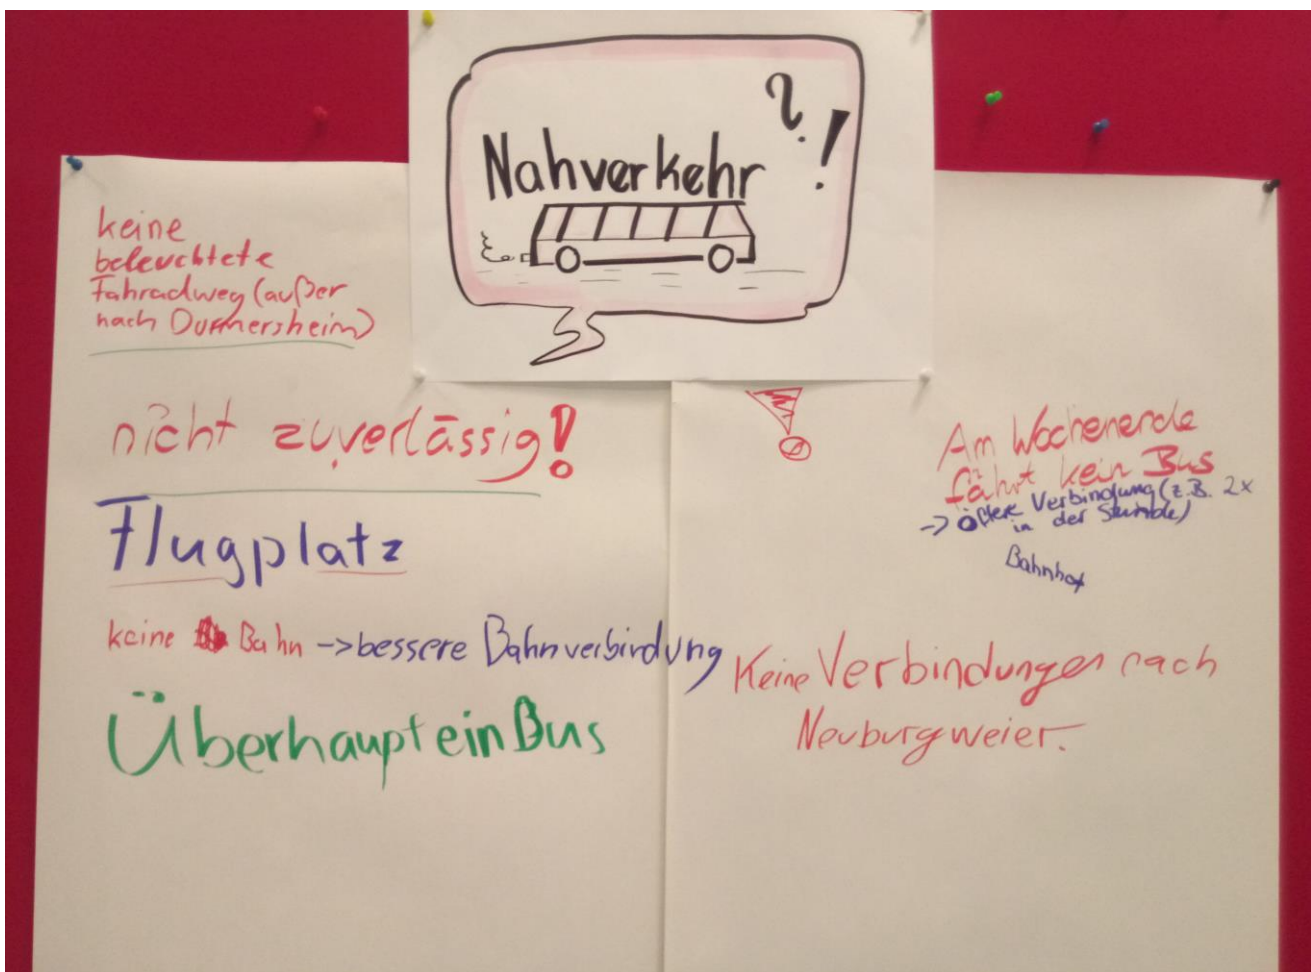 Nahverkehr ?!
keine
beleuchtete
Fahradweg (außer
nach Durmersheim)
nicht zuverlässig!
Flugplatz
keine Bahn -> bessere Bahnverbindung
Überhaupt ein Bus
!
Am Wochenende
fährt kein Bus
-> öftere Verbindung (z.B. 2x
in der Stunde)
Bahnhof
Keine Verbindungen nach
Neuburgweier.